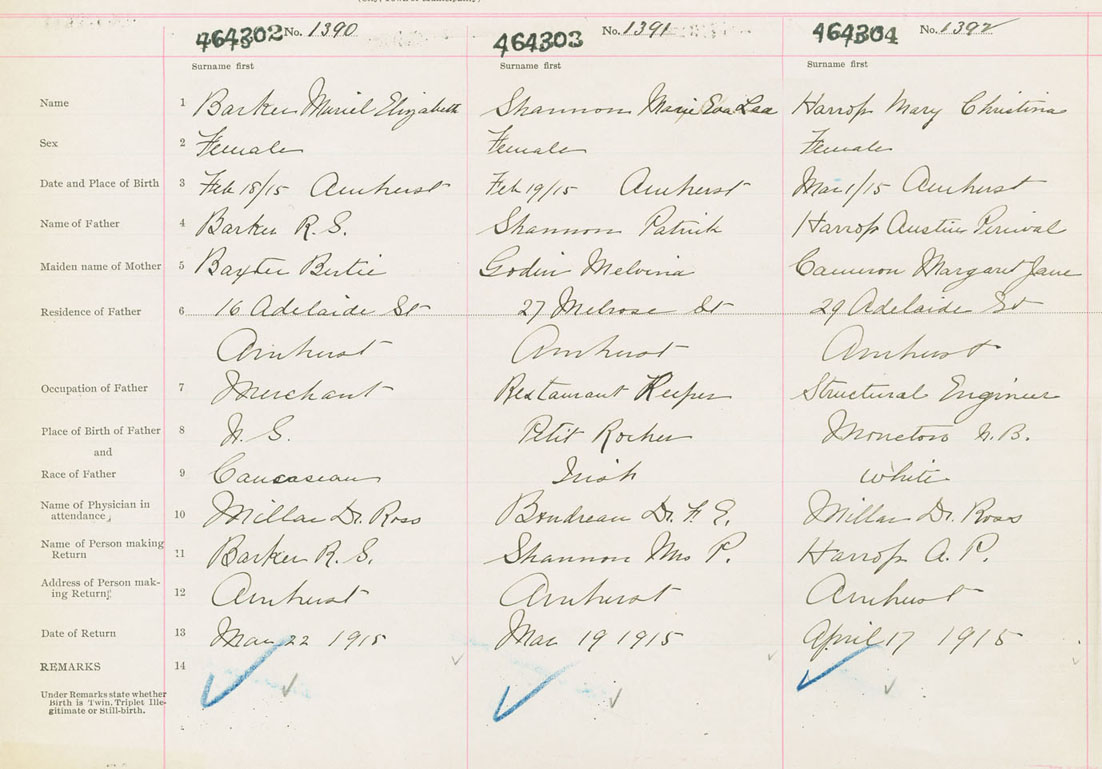 464302 No. 1390 464303 No. 1391 464304 No. 1392
Surname first Surname first Surname first
Name 1 Barker Muriel Elizabeth Shannon Marie Eva Lea Harrop Mary Christina
Sex 2 Female Female Female
Date and Place of Birth 3 Feb 18/15 Amherst Feb 19/15 Amherst Mar 1/15 Amherst
Name of Father 4 Barker R. S. Shannon Patrick Harrop Austin Percival
Maiden name of Mother 5 Baxter Bertie Godin Melvina Cameron Margaret Jane
Residence of Father 6 16 Adelaide St 27 Melrose St 29 Adelaide St
Amherst Amherst Amherst
Occupation of Father 7 Merchant Restaurant Keeper Structural Engineer
Place of Birth of Father 8 N. S. Petit Rocher Moncton N. B.
and
Race of Father 9 Caucasean Irish White
Name of Physician in
attendance, 10 Millar Dr. Ross Boudreau Dr. F. E. Millar Dr. Ross
Name of Person making
Return 11 Barker R. S. Shannon Mrs P. Harrop A. P.
Address of Person mak-
ing Return 12 Amherst Amherst Amherst
Date of Return 13 Mar 22 1915 Mar 19 1915 April 17 1915
REMARKS 14
Under Remarks state whether
Birth is Twin, Triplet Ille-
gitimate or Still-birth.